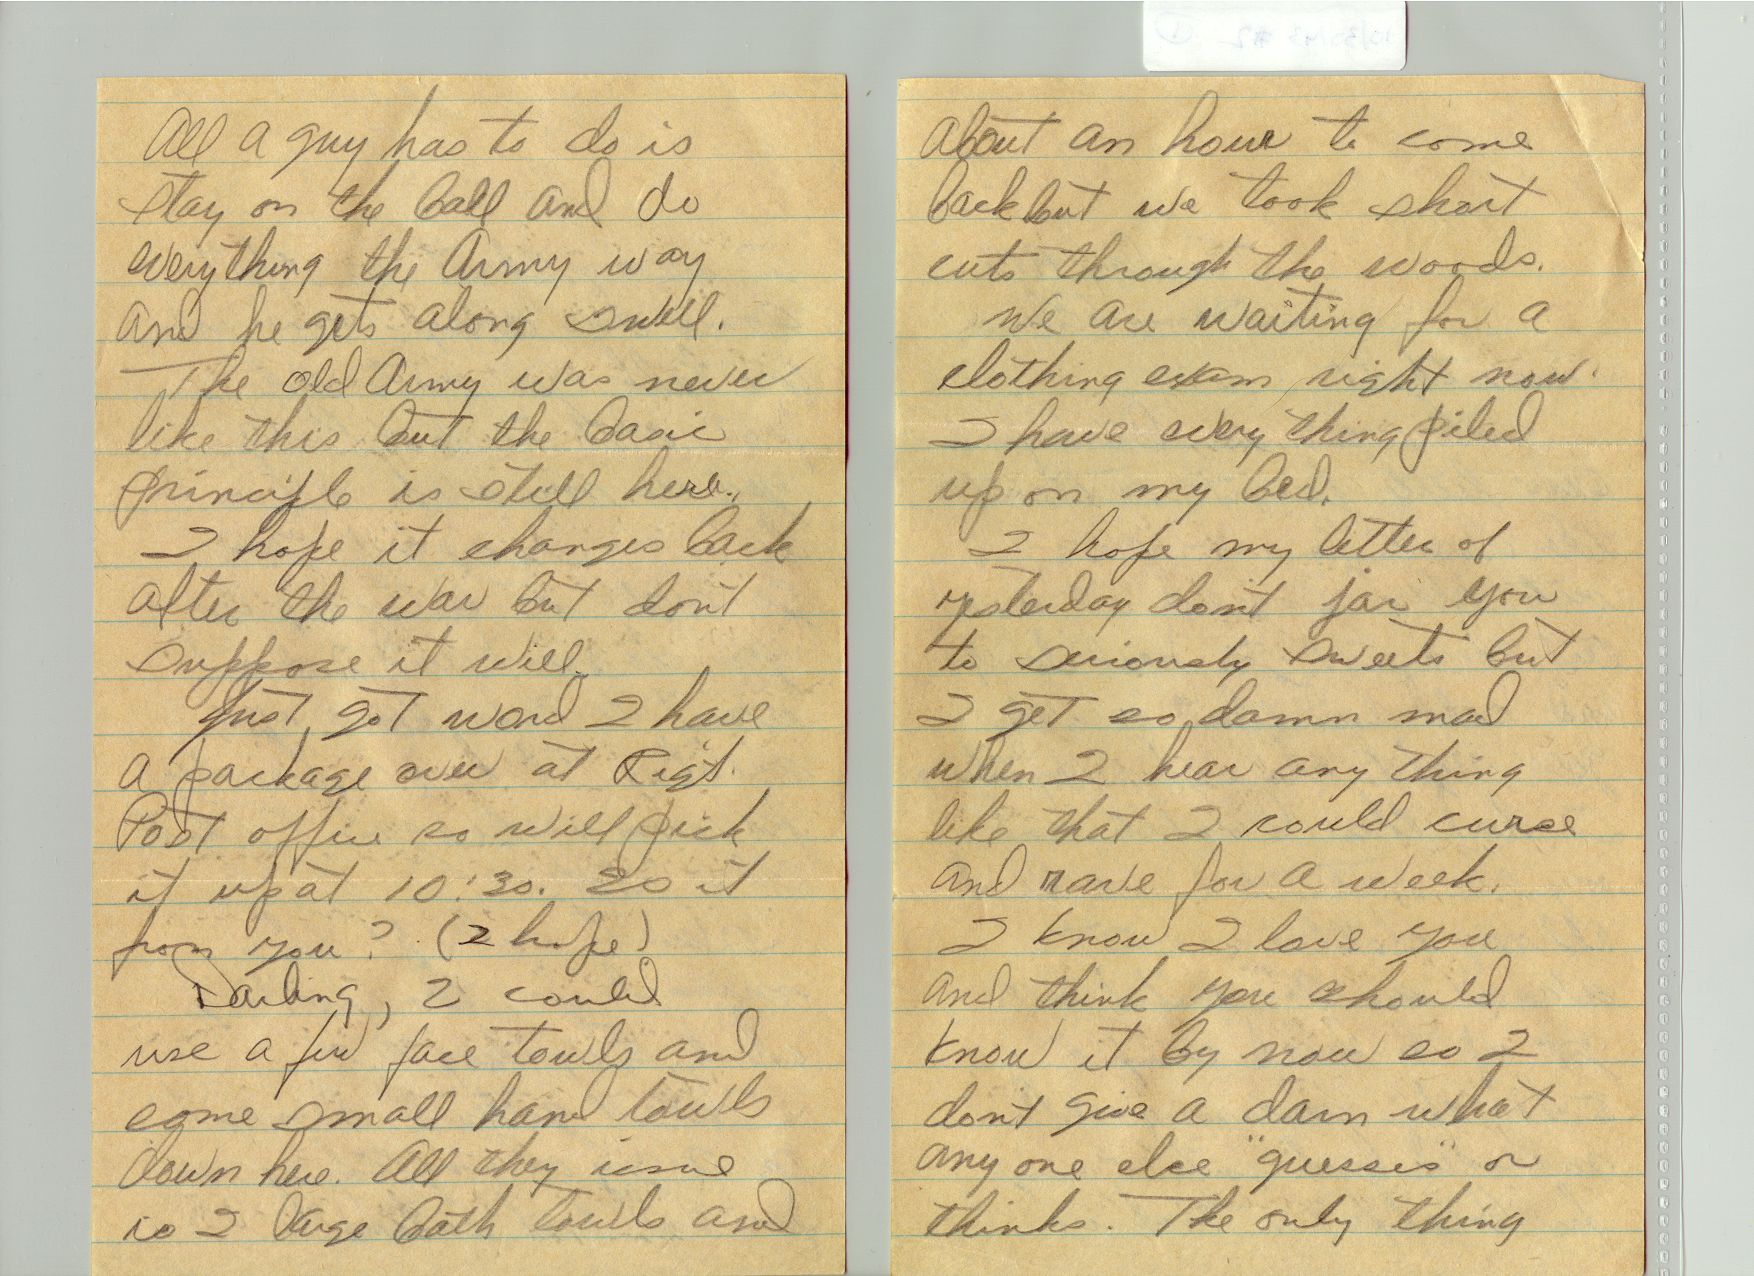 All a guy has to do is
stay on the ball and do
everything the Army way
and he gets along swell.
The old Army was never
like this but the basic
principle is still here.
I hope it changes back
after the war but don't
suppose it will.
Just got word I have
a package over at Rigt.
Post office so will pick
it up at 10:30. Is it
from you? (I hope)
Darling, I could
use a few face towls and
some small hand towls
down here. All they issue
is 2 large bath towls and
10/30/43 #2 1
about an hour to come
back but we took short
cuts through the woods.
We are waiting for a
clothing exam right now.
I have every thing piled
up on my bed.
I hope my letter of
yesterday don't jar you
to seriously sweets but
I get so damn mad
when I hear any thing
like that I could curse
and rave for a week.
I know I love you
and think you should
know it by now so I
don't give a darn what
any one else "guesses" or
thinks. The only thing